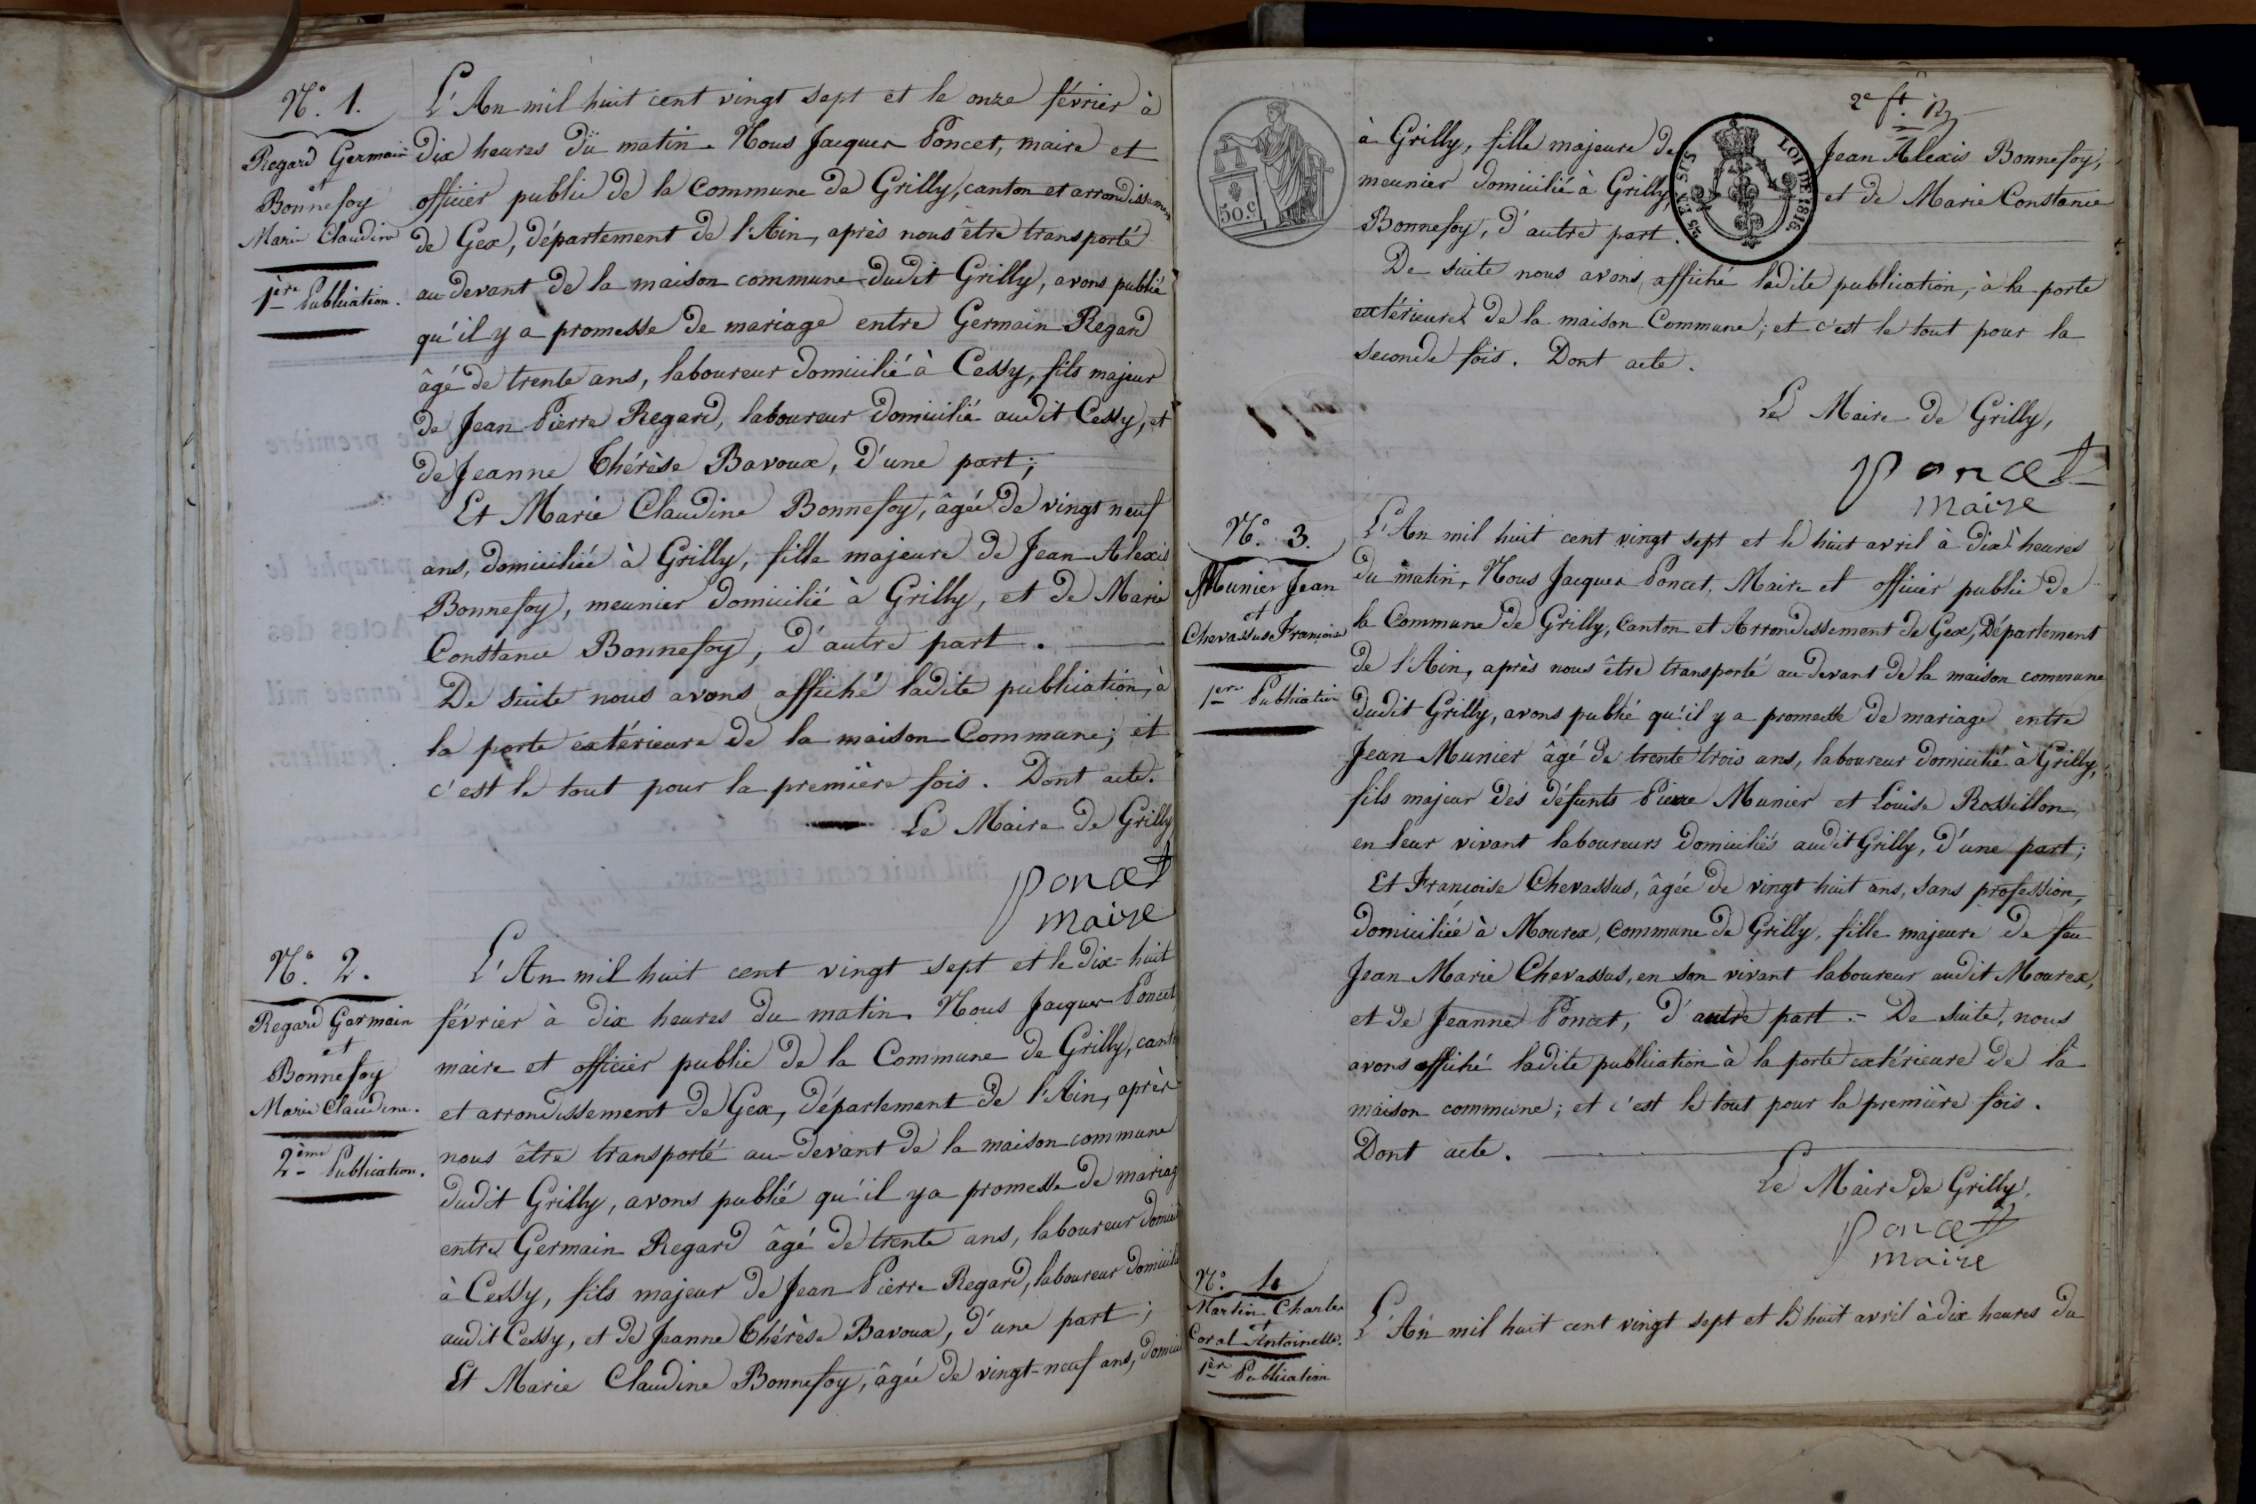 N.° 1.
Regard Germain
et
Bonnefoy
Marie Claudine
1ère Publication.
L'An mil huit cent vingt sept et le onze février à
dix heures du matin. Nous Jacques Poncet, maire et
officier public de la Commune de Grilly, canton et arrondissement
de Gex, département de l'Ain, après nous être transporté
au devant de la maison commune dudit Grilly, avons publié
qu'il y a promesse de mariage entre Germain Regard
âgé de trente ans, laboureur domicilié à Cessy, fils majeur
de Jean Pierre Regard, laboureur domicilié audit Cessy, et
de Jeanne Thérèse Bavoux, d'une part;
Et Marie Claudine Bonnefoy, âgée de vingt neuf
ans, domiciliée à Grilly, fille majeure de Jean Alexis
Bonnefoy, meunier domicilié à Grilly, et de Marie
Constance Bonnefoy, d'autre part.
De suite nous avons affiché ladite publication, à
la porte extérieure de la maison Commune; et
c'est le tout pour la première fois. Dont acte.
Le Maire de Grilly
poncet
maire
N.° 2.
Regard Germain
et
Bonnefoy
Marie Claudine.
2ème Publication.
L'An mil huit cent vingt sept et le dix-huit
février à dix heures du matin. Nous Jacques Poncet
maire et officier public de la Commune de Grilly, canton
et arrondissement de Gex, département de l'Ain, après
nous être transporté au-devant de la maison commune
dudit Grilly, avons publié qu'il y a promesse de mariag
entre Germain Regard âgé de trente ans, laboureur domicil
à Cessy, fils majeur de Jean Pierre Regard, laboureur domicilié
audit Cessy, et de Jeanne Thérèse Bavoux, d'une part;
Et Marie Claudine Bonnefoy, âgée de vingt-neuf ans, domicil
2e ft.
50.c
25 EN SUS
LOI DE 1816.
à Grilly, fille majeure de Jean Alexis Bonnefoy,
meunier domicilié à Grilly, et de Marie Constance
Bonnefoy, d'autre part.
De suite nous avons affiché ladite publication, à la porte
extérieure de la maison Commune; et c'est le tout pour la
seconde fois. Dont acte.
Le Maire de Grilly,
poncet
maire
N.° 3.
Munier Jean
et
Chevassus Françoise
1ere Publication
L'An mil huit cent vingt sept et le huit avril à dix heures
du matin, Nous Jacques Poncet, Maire et officier public de
la Commune de Grilly, Canton et Arrondissement de Gex, Département
de l'Ain, après nous être transporté au devant de la maison commune
dudit Grilly, avons publié qu'il y a promesse de mariage entre
Jean Munier âgé de trente trois ans, laboureur domicilié à Grilly,
fils majeur des défunts Pierre Munier et Louise Rossillon,
en leur vivant laboureurs domiciliés audit Grilly, d'une part;
Et Françoise Chevassus, âgée de vingt huit ans, sans profession,
domiciliée à Mourex, Commune de Grilly, fille majeure de feu
Jean Marie Chevassus, en son vivant laboureur audit Mourex,
et de Jeanne Poncet, d'autre part. - De suite, nous
avons affiché ladite publication à la porte extérieure de la
maison commune; et c'est le tout pour la première fois.
Dont acte.
Le Maire de Grilly.
poncet
maire
N.° 4
Martin Charles
et
Coral Antoinette.
1ère Publication
L'An mil huit cent vingt sept et le huit avril à dix heures du